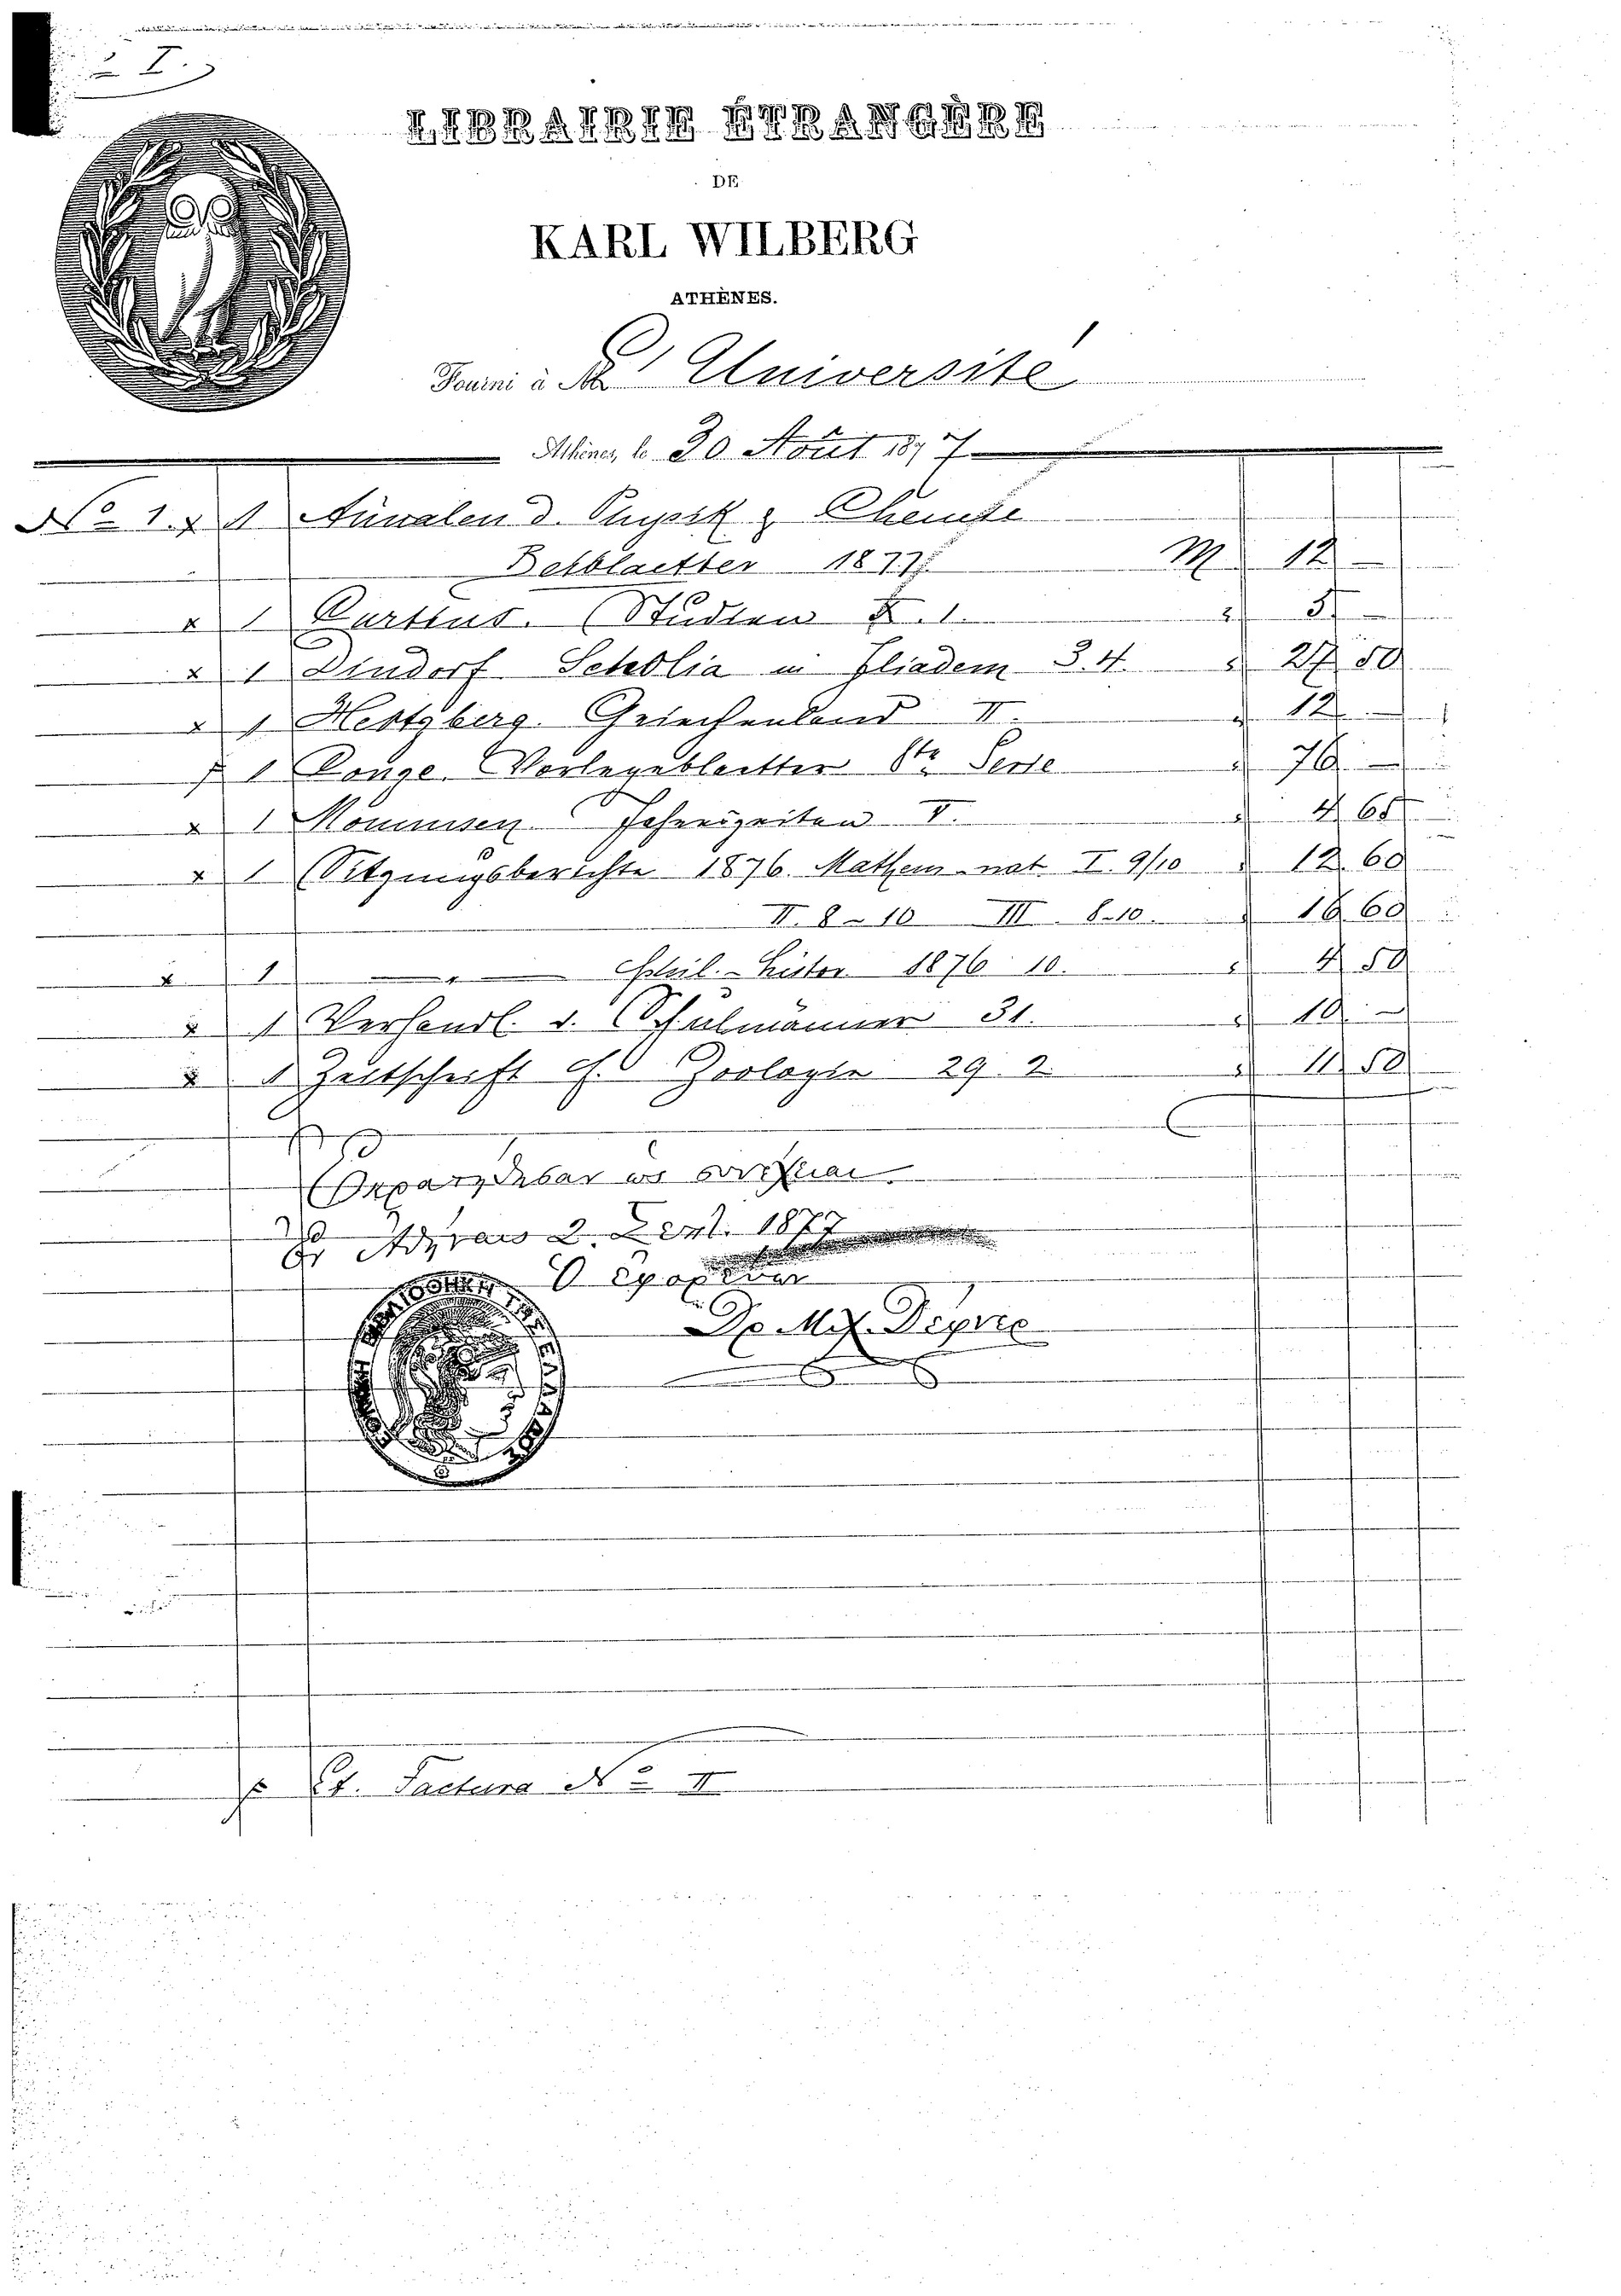 I.
LIBRAIRIE ÉTRANGÈRE
DE
KARL WILBERG
ATHÈNES.
Fourni à l'Université
Athènes, le 30 Août 1877
No 1. 1 Annalen d. Physik & Chemie
Beiblaetter 1877. M 12 —
1 Curtius. Studien X. 1. 5 —
1 Dindorf Scholia in Iliadem 3.4. 27 50
1 Hertzberg. Griechenland II. 12 —
1 Conze. Vorlegeblaetter 8te Serie 76 —
1 Mommsen. Jahreszeiten V. 4 65
1 Sitzungsberichte 1876. Mathem-nat. I. 9/10 12 60
II. 8-10 III. 8-10. 16 60
1 — " — Phil.-histor. 1876 10. 4 50
1 Verhandl. d. Schulmänner 31. 10 —
1 Zeitschrift f. Zoologie 29. 2. 11 50
2 1877
Ὁ ἔφορεύων
Μιχ. Δέφνερ
Ct. Factura No II